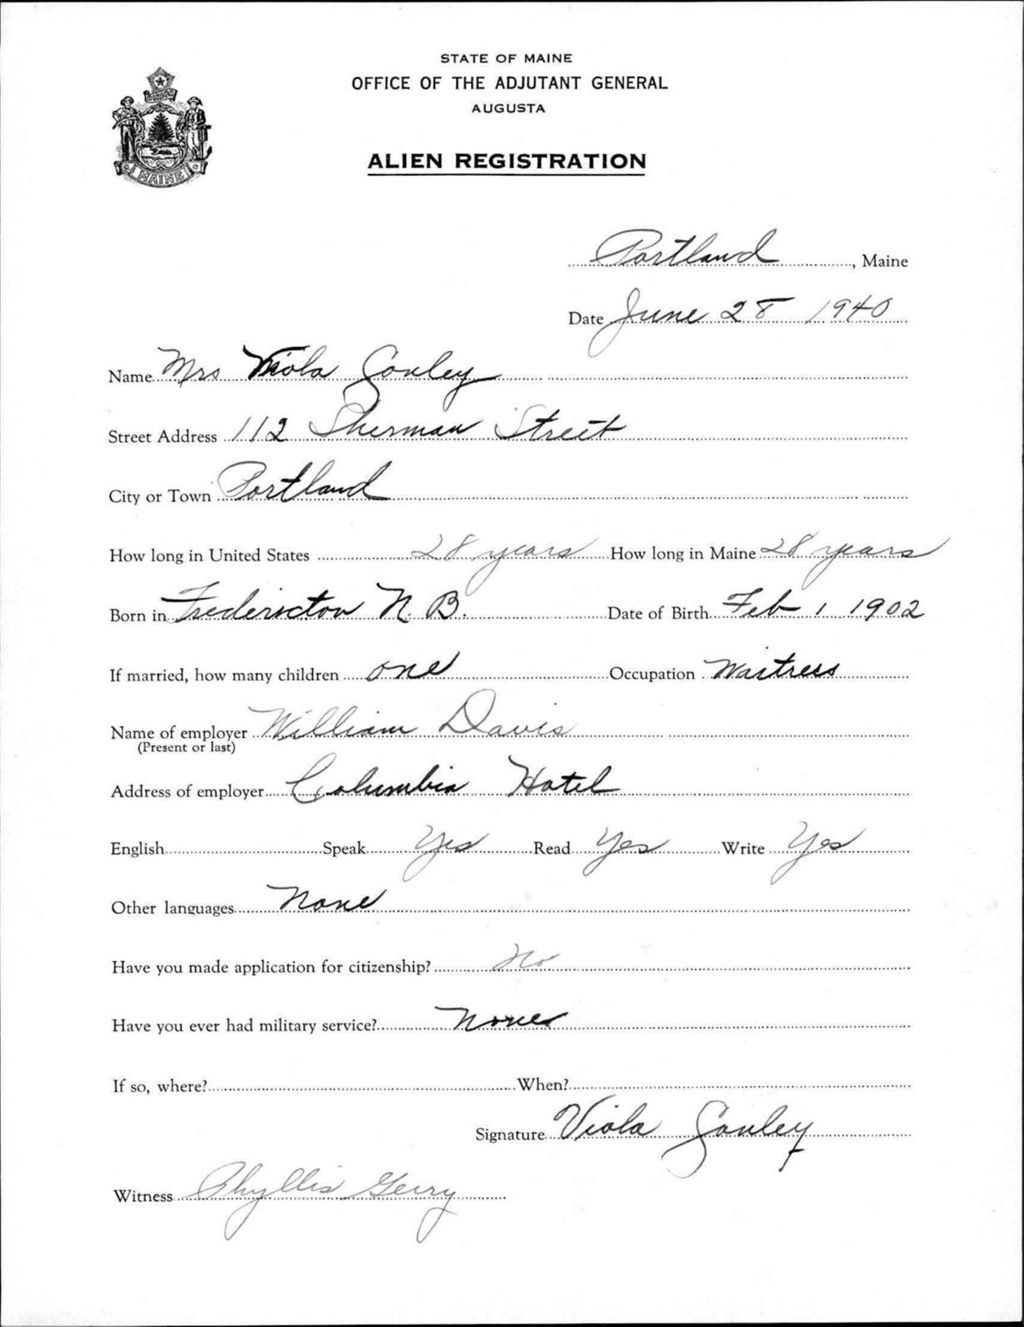 STATE OF MAINE
OFFICE OF THE ADJUTANT GENERAL
AUGUSTA
ALIEN REGISTRATION
MAINE
Portland, Maine
Date June 28 1940
Name Mrs Viola Gouley
Street Address 112 Sherman Street
City or Town Portland
How long in United States 28 years How long in Maine 28 years
Born in Fredericton N. B. Date of Birth Feb 1, 1902
If married, how many children one Occupation Waitress
Name of employer William Davis
(Present or last)
Address of employer Columbia Hotel
English Speak Yes Read Yes Write Yes
Other languages None
Have you made application for citizenship? No
Have you ever had military service? None
If so, where? When?
Signature Viola Gouley
Witness Phyllis Gerry